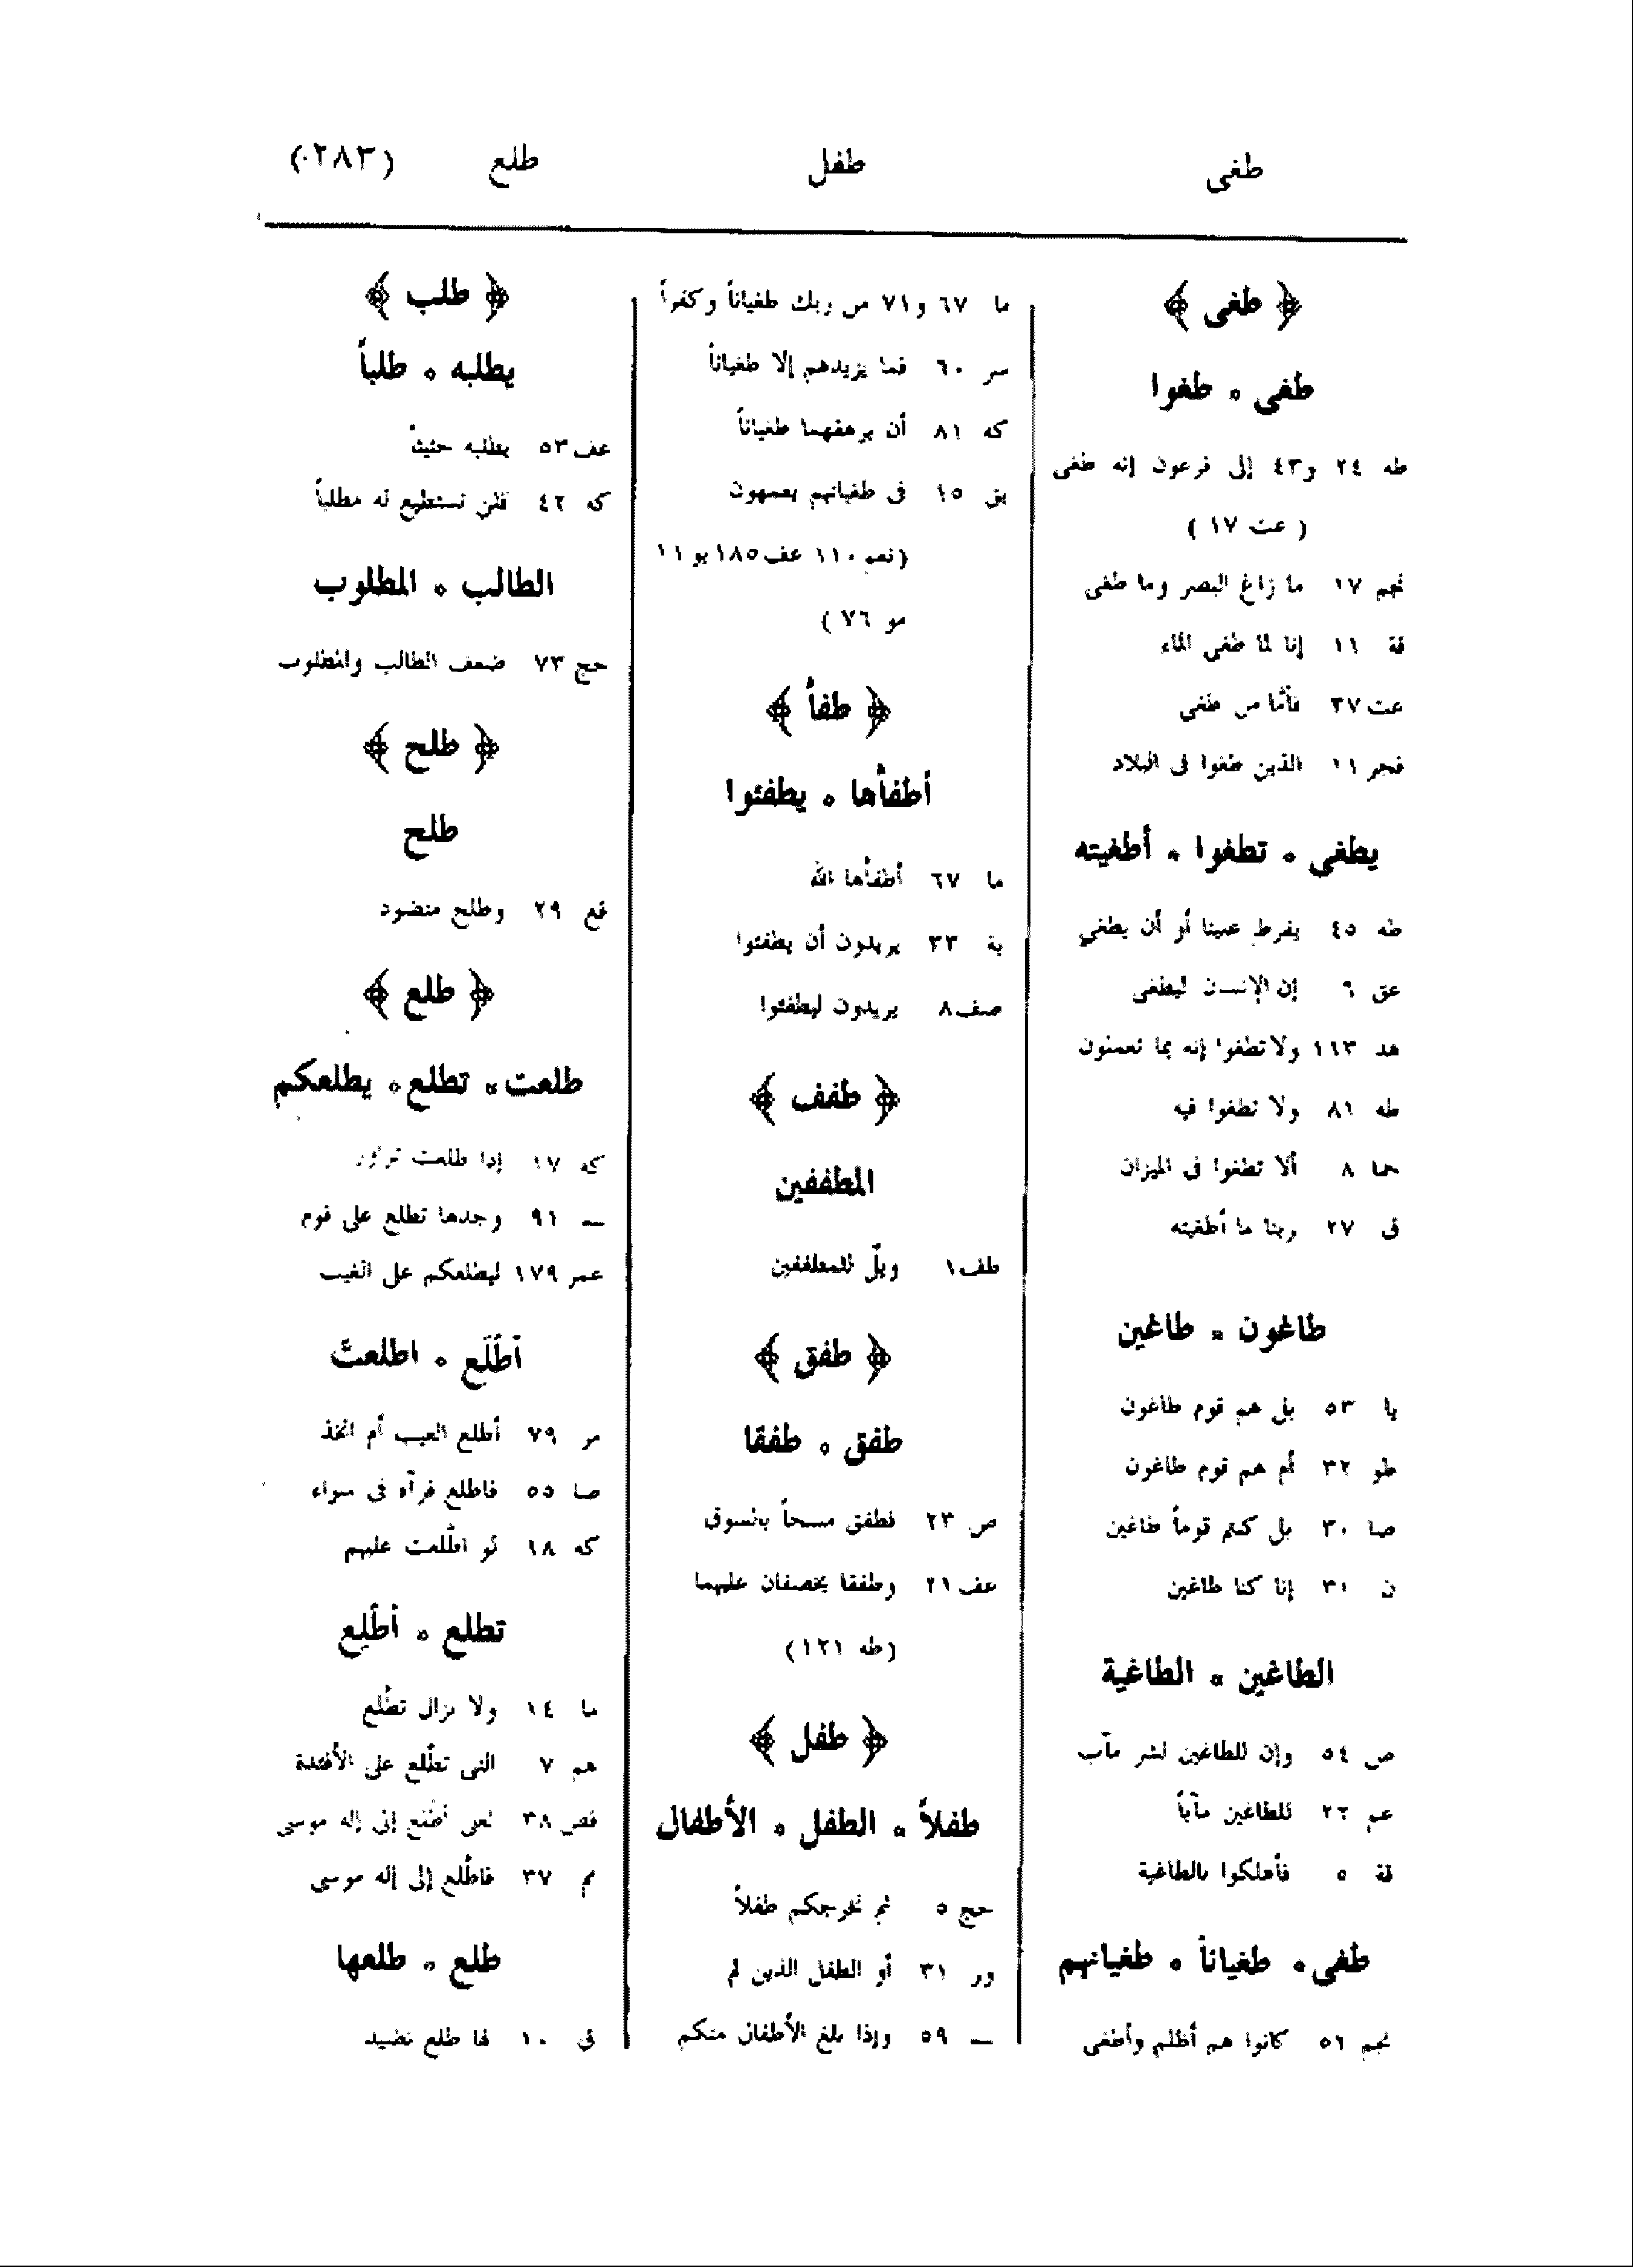 طغى طفل طلع (٢٨٣)
﴿ طغى ﴾
طغى ٠ طغوا
طه ٢٤ و٤٣ إلى فرعون إنه طغى
( عت ١٧ )
نجم ١٧ ما زاغ البصر وما طغى
قة ١١ إنا لما طغى الماء
عت ٣٧ فأما من طغى
فجر ١١ الذين طغوا فى البلاد
يطغى ٠ تطغوا ٠ أطغيته
طه ٤٥ يفرط علينا أو أن يطغى
عق ٦ إن الإنسان ليطغى
هد ١١٣ ولا تطغوا إنه بما تعملون
طه ٨١ ولا تطغوا فيه
حما ٨ ألا تطغوا فى الميزان
ق ٢٧ ربنا ما أطغيته
طاغون ٠ طاغين
يا ٥٣ بل هم قوم طاغون
طو ٣٢ أم هم قوم طاغون
صا ٣٠ بل كنتم قوماً طاغين
ن ٣١ إنا كنا طاغين
الطاغين ٠ الطاغية
ص ٥٤ وإن للطاغين لشر مآب
عم ٢٢ للطاغين مآباً
قة ٥ فأهلكوا بالطاغية
طغى ٠ طغياناً ٠ طغيانهم
نجم ٥١ كانوا هم أظلم وأطغى
ما ٦٧ و٧١ من ربك طغياناً وكفراً
سر ٦٠ فما يزيدهم إلا طغياناً
كه ٨١ أن يرهقهما طغياناً
بق ١٥ فى طغيانهم يعمهون
(نعم ١١٠ عف ١٨٥ يو ١١
مو ٧٦ )
﴿ طفأ ﴾
أطفأها ٠ يطفئوا
ما ٦٧ أطفأها الله
بة ٣٣ يريدون أن يطفئوا
صف ٨ يريدون ليطفئوا
﴿ طفف ﴾
المطففين
طف ١ ويلٌ للمطففين
﴿ طفق ﴾
طفق ٠ طفقا
ص ٢٣ فطفق مسحاً بالسوق
عف ٢١ وطفقا يخصفان عليهما
(طه ١٢١)
﴿ طفل ﴾
طفلاً ٠ الطفل ٠ الأطفال
حج ٥ ثم نخرجكم طفلاً
ور ٣١ أو الطفل الذين لم
— ٥٩ وإذا بلغ الأطفال منكم
﴿ طلب ﴾
يطلبه ٠ طلباً
عف ٥٣ يطلبه حثيثاً
كه ٤٢ فلن تستطيع له مطلباً
الطالب ٠ المطلوب
حج ٧٣ ضعف الطالب والمطلوب
﴿ طلح ﴾
طلح
قع ٢٩ وطلح منضود
﴿ طلع ﴾
طلعت ٠ تطلع ٠ يطلعكم
كه ١٧ إذا طلعت تزاور
— ٩١ وجدها تطلع على قوم
عمر ١٧٩ ليطلعكم على الغيب
أَطَّلَع ٠ اطلعتَ
مر ٧٩ أطلع الغيب أم اتخذ
صا ٥٥ فاطلع فرآه فى سواء
كه ١٨ لو اطّلعت عليهم
تطلع ٠ أطّلِع
ما ١٤ ولا تزال تطّلع
هم ٧ التى تطّلع على الأفئدة
قص ٣٨ لعلى أطّلع إلى إله موسى
مم ٣٧ فاطّلع إلى إله موسى
طلع ٠ طلعها
ق ١٠ لها طلع نضيد